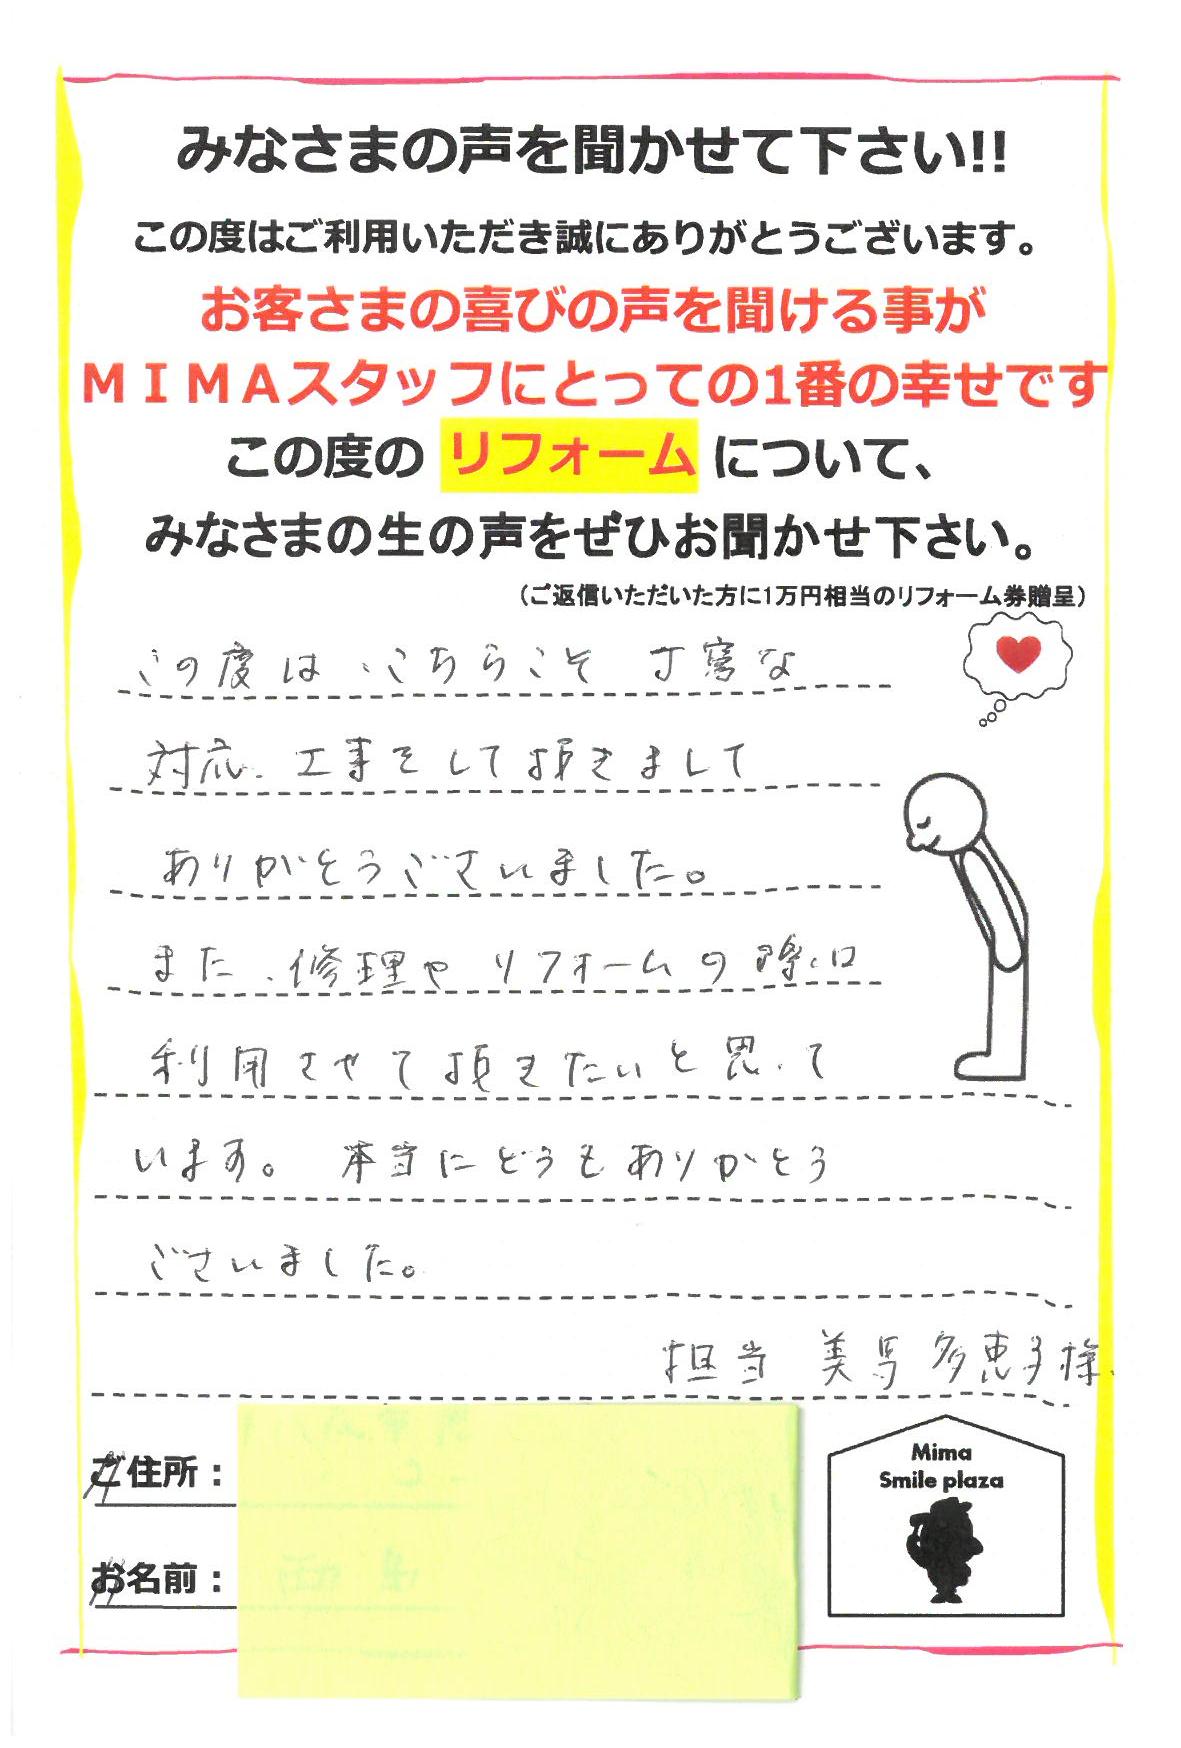 みなさまの声を聞かせて下さい!!
この度はご利用いただき誠にありがとうございます。
お客さまの喜びの声を聞ける事が
ＭＩＭＡスタッフにとっての1番の幸せです
この度の リフォーム について、
みなさまの生の声をぜひお聞かせ下さい。
（ご返信いただいた方に1万円相当のリフォーム券贈呈）
この度は、こちらこそ 丁寧な
対応、工事をして頂きまして
ありがとうございました。
また、修理や リフォームの際は
利用させて頂きたいと思って
います。 本当にどうもありがとう
ございました。
担当 美馬多恵子様
ご住所：
お名前：
Mima
Smile plaza